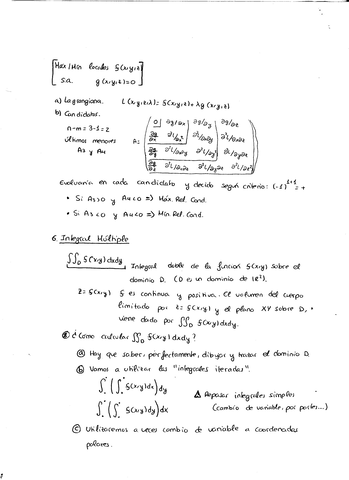 [Máx/Mín locales f(x,y,z)
s.a. g(x,y,z)=0]
a) Lagrangiana. L(x,y,z,λ)= f(x,y,z)+λg(x,y,z)
b) Candidatos.
n-m=3-1=2
últimos menores
A3 y A4
A=
0 ∂g/∂x ∂g/∂y ∂g/∂z
∂g/∂x ∂²L/∂x² ∂²L/∂x∂y ∂²L/∂x∂z
∂g/∂y ∂²L/∂x∂y ∂²L/∂y² ∂²L/∂y∂z
∂g/∂z ∂²L/∂x∂z ∂²L/∂y∂z ∂²L/∂z²
Evaluaría en cada candidato y decido según criterio: (-1)¹⁺¹ = +
• Si A3>0 y A4<0 => Máx. Rel. Cond.
• Si A3<0 y A4<0 => Mín. Rel. Cond.
6. Integral Múltiple
∬_D f(x,y)dxdy
Integral doble de la función f(x,y) sobre el
dominio D. (D es un dominio de ℝ²).
z=f(x,y) f es continua y positiva. El volumen del cuerpo
limitado por z=f(x,y) y el plano XY sobre D,
viene dado por ∬_D f(x,y)dxdy.
¿Cómo calcular ∬_D f(x,y)dxdy?
a Hay que saber, perfectamente, dibujar y tratar el dominio D.
b Vamos a utilizar las "integrales iteradas".
∫(∫ f(x,y)dx)dy
⚠ Repasar integrales simples
∫(∫ f(x,y)dy)dx
(cambio de variable, por partes...)
c Utilizaremos a veces cambio de variable a coordenadas
polares.